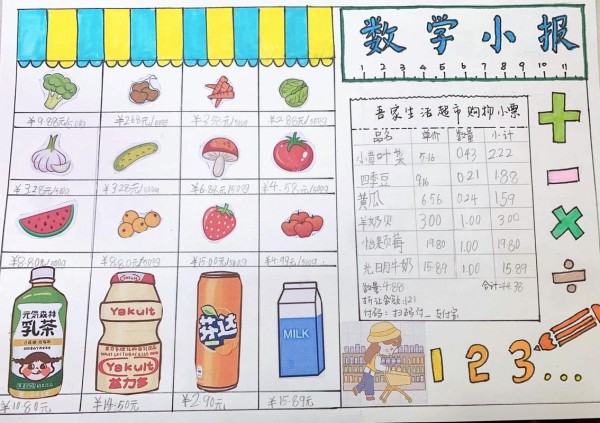 数学小报
1 2 3 4 5 6 7 8 9 10 11
¥9.88元/500g
¥2.88元/500g
¥2.88元/500g
¥3.28元/500g
¥3.28元/500g
¥6.88元/500g
¥4.58元/500g
¥8.80元/500g
¥8.80元/500g
¥15.00元/500g
¥4.99元/500g
元気森林
乳茶
Yakult
Yakult
益力多
芬达
MILK
¥10.80元
¥14.50元
¥2.90元
¥15.89元
吾家生活超市购物小票
品名 单价 数量 小计
小黄叶菜 5.16 0.43 2.22
四季豆 9.16 0.21 1.88
黄瓜 6.56 0.24 1.59
羊奶贝 3.00 1.00 3.00
怡颗莓 19.80 1.00 19.80
光明牛奶 15.89 1.00 15.89
数量:4.88
合计:
折让金额:1.21
付码:扫码付_支付宝
1 2 3 ...